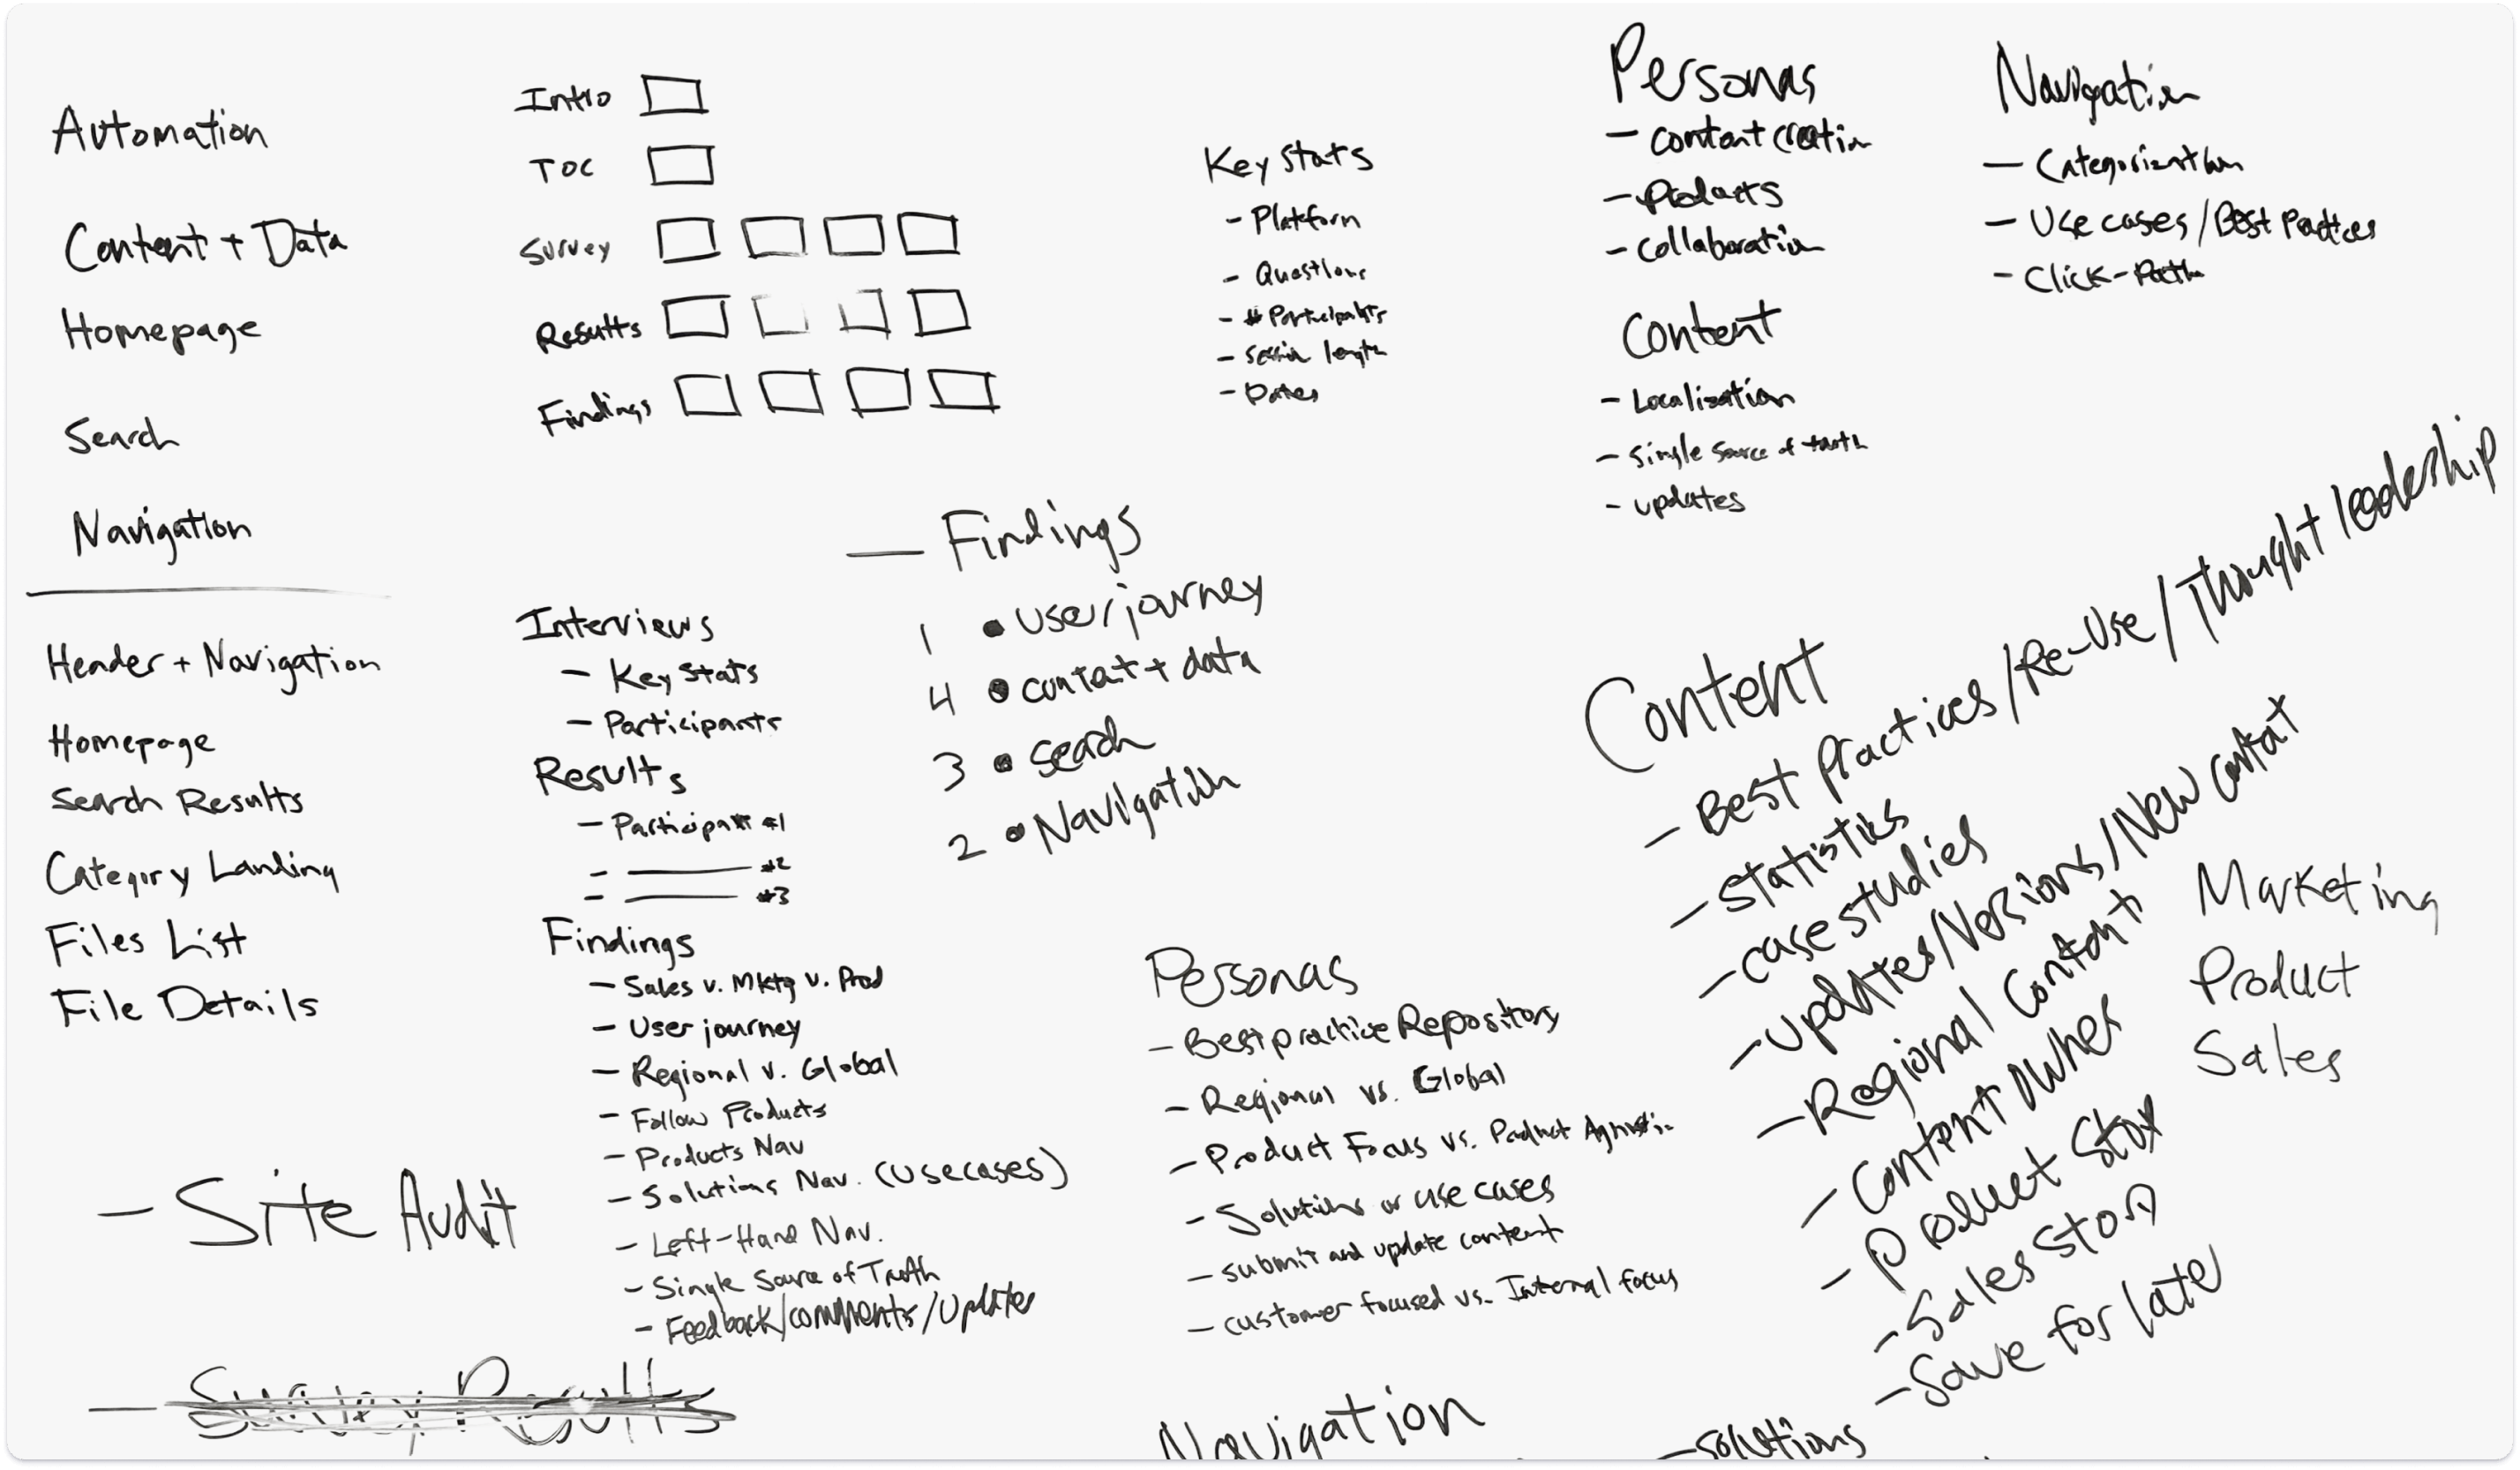 Automation
Content + Data
Homepage
Search
Navigation
Header + Navigation
Homepage
Search Results
Category Landing
Files List
File Details
- Site Audit
- Survey Results
Intro
TOC
Survey
Results
Findings
Interviews
- Key Stats
- Participants
Results
- Participant #1
- #2
- #3
Findings
- Sales v. Mktg v. Prod
- User journey
- Regional v. Global
- Follow Products
- Products Nav
- Solutions Nav. (Use cases)
- Left-Hand Nav.
- Single Source of Truth
- Feedback/comments/Updates
- Findings
1 • User/journey
4 • content + data
3 • Search
2 • Navigation
Key Stats
- Platform
- Questions
- # Participants
- session length
- Dates
Personas
- Best practice Repository
- Regional vs. Global
- Product Focus vs. Product Agnostic
- Solutions or use cases
- submit and update content
- customer focused vs. Internal focus
Navigation
- solutions
Personas
- content creation
- Products
- Collaboration
Content
- Localization
- Single source of truth
- updates
Navigation
- Categorization
- Use cases/Best Practices
- Click-Path
Content
- Best practices/Re-Use/Thought leadership
- Statistics
- case studies
- updates/Versions/New content
- Regional Content
- Content owner
- Product
- Sales
- Save for late
Marketing
Product
Sales